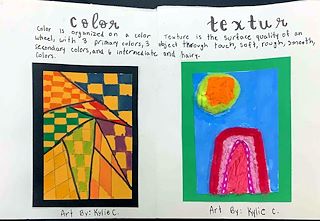 color
color is organized on a color
wheel, with 3 primary colors, 3
secondary colors, and 6 intermediate
colors.
Art By: Kylie C.
textur
Texture is the surface quality of an
object through touch, soft, rough, smooth,
and hairy.
Art By: Kylie C.